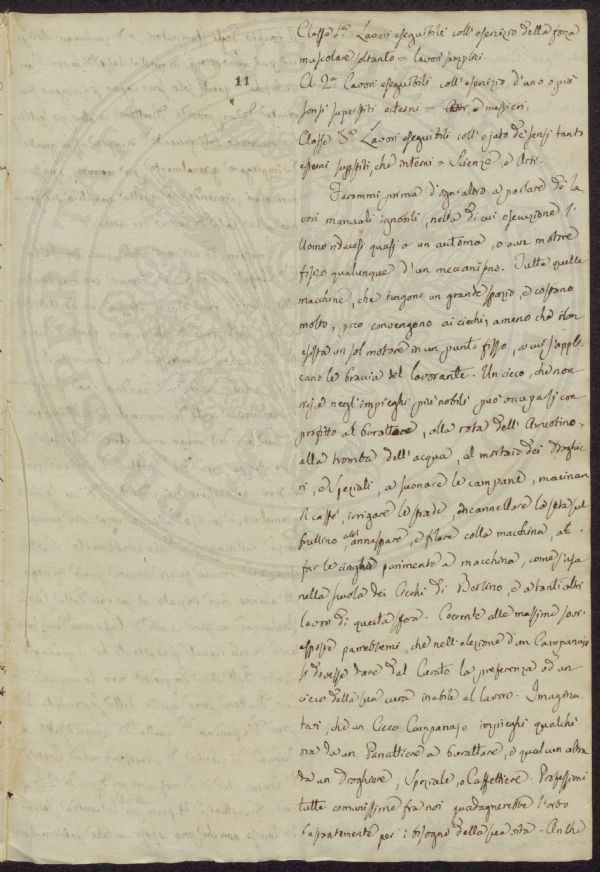 Classe 1ª Lavori eseguibili coll'esercizio della forza
muscolare soltanto = lavori semplici.
11
Cl. 2ª Lavori eseguibili coll'esercizio d'uno o più
sensi superstiti esterni = e mestieri.
Classe 3ª Lavori eseguibili coll'ajuto de' sensi tanto
esterni superstiti, che interni = Scienze, e Arti.
Farommi prima d'ogni altro a parlare de' la-
vori manuali ignobili, nella di cui esecuzione l'
Uomo riducesi quasi a un automa, o a un motore
fisico qualunque d'un meccanismo. Tutte quelle
macchine, che tengono un grande spazio, e costano
molto, poco convengono ai ciechi, a meno che non
esista un sol motore in un punto fisso, a cui s'appli-
cano le braccia del lavorante. Un cieco, che non
riesce negl'impieghi più nobili può occuparsi con
profitto al burattare, alla rota dell'Arrotino,
alla tromba dell'acqua, al mortajo dei Droghie-
ri, o Speziali, a suonare le campane, macinare
il caffè, irrigare le strade, incannellare la seta sul
frullino, all'annaspare, e filare colla macchina, al
far le parimente a macchina, come s'usa
nella scuola dei Ciechi di Berlino, e a tanti altri
lavori di questa sfera. Coerente alle massime sovr-
esposte parrebbemi, che nell'elezione d'un Campanajo
si dovesse dare dal Curato la preferenza ad un
cieco della sua cura inabile al lavoro. Imagina-
tasi, che un Cieco Campanajo impieghi qualche
ora da un Panattiere a burattare, e qualcun altra
da un Droghiere, Speziale, o Caffettiere. Professioni
tutte comunissime fra noi guadagnerebbe l'orbo
bastantemente per i bisogni della sua vita. Anche